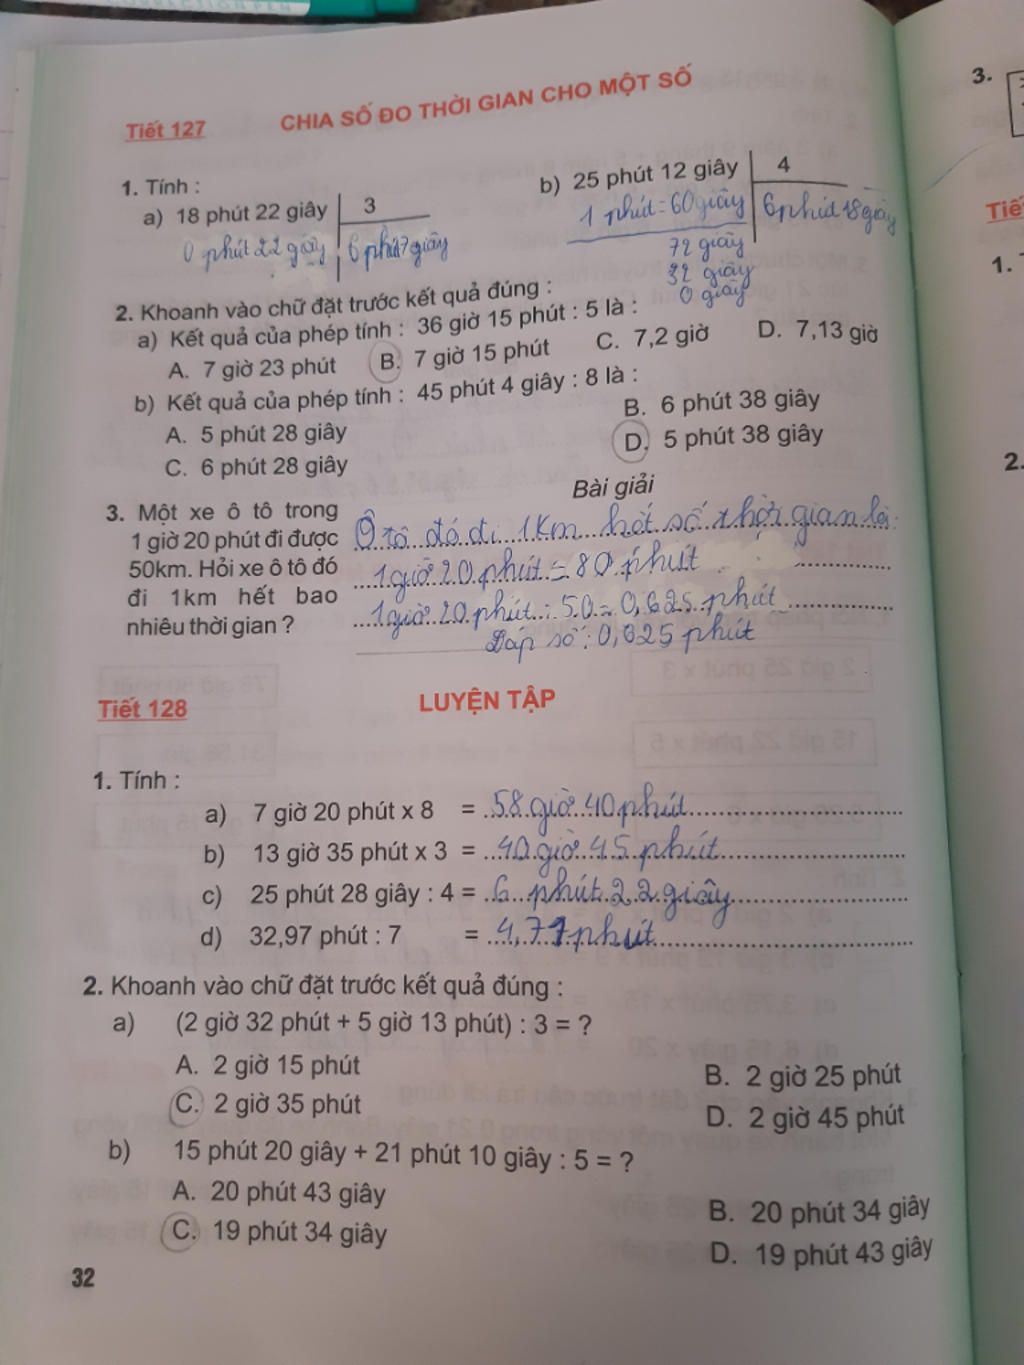 CORRECTION PEN
Tiết 127 CHIA SỐ ĐO THỜI GIAN CHO MỘT SỐ
1. Tính :
a) 18 phút 22 giây 3
0 phút 22 giây 6 phút 7 giây
b) 25 phút 12 giây 4
1 phút = 60 giây 6 phút 18 giây
72 giây
32 giây
0 giây
2. Khoanh vào chữ đặt trước kết quả đúng :
a) Kết quả của phép tính : 36 giờ 15 phút : 5 là :
A. 7 giờ 23 phút B. 7 giờ 15 phút C. 7,2 giờ D. 7,13 giờ
b) Kết quả của phép tính : 45 phút 4 giây : 8 là :
A. 5 phút 28 giây B. 6 phút 38 giây
C. 6 phút 28 giây D. 5 phút 38 giây
3. Một xe ô tô trong
1 giờ 20 phút đi được
50km. Hỏi xe ô tô đó
đi 1km hết bao
nhiêu thời gian ?
Bài giải
Ô tô đó đi 1Km hết số thời gian là:
1 giờ 20 phút = 80 phút
1 giờ 20 phút : 50 = 0,625 phút
Đáp số : 0,625 phút
Tiết 128 LUYỆN TẬP
1. Tính :
a) 7 giờ 20 phút x 8 = 58 giờ 40 phút
b) 13 giờ 35 phút x 3 = 40 giờ 45 phút
c) 25 phút 28 giây : 4 = 6 phút 22 giây
d) 32,97 phút : 7 = 4,71 phút
2. Khoanh vào chữ đặt trước kết quả đúng :
a) (2 giờ 32 phút + 5 giờ 13 phút) : 3 = ?
A. 2 giờ 15 phút B. 2 giờ 25 phút
C. 2 giờ 35 phút D. 2 giờ 45 phút
b) 15 phút 20 giây + 21 phút 10 giây : 5 = ?
A. 20 phút 43 giây B. 20 phút 34 giây
C. 19 phút 34 giây D. 19 phút 43 giây
32
3.
Tiế
1.
2.